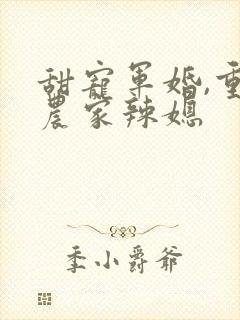 甜寵軍婚,重
農家辣媳
季小爵爺